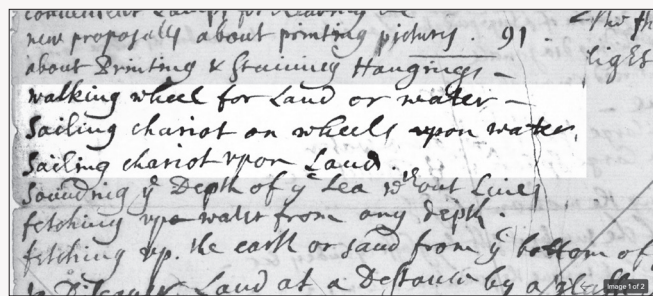 convenient Lamps for
new proposalls about printing pictures. 91.
about Printing & Staining Hangings —
walking wheel for Land or water —
Sailing chariot on wheels upon water,
Sailing chariot upon Land.
Sounding yᵉ Depth of yᵉ Sea wᵗʰout Lines
fetching upp water from any depth.
fetching up. the earth or sand from yᵉ bottom of
Land at a Distance by a
light
Image 1 of 2